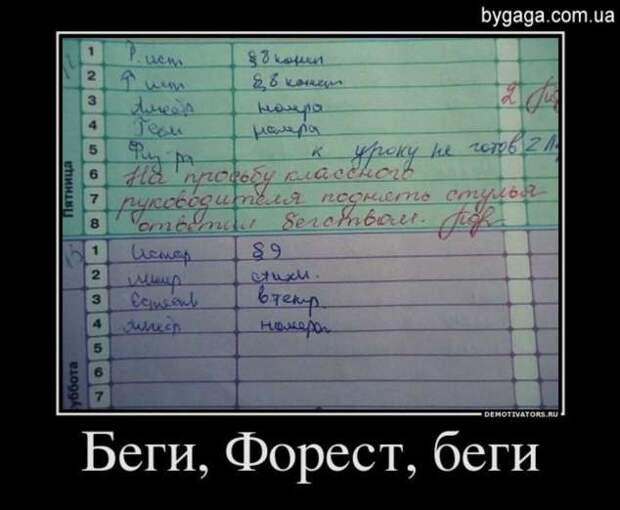 bygaga.com.ua
1 Р. ист § 8 конец
2 Р ист § 8 конец
3 Алгебр номера 2
4 Геом номера
5 Физ-ра к уроку не готов 2
6 На просьбу классного
7 руководителя поднять стулья
8 ответил бегством.
Пятница
1 Истор § 9
2 Литер стихи.
3 Естеств в тетр
4 Алгебр номера
5
6
7
уббота
DEMOTIVATORS.RU
Беги, Форест, беги